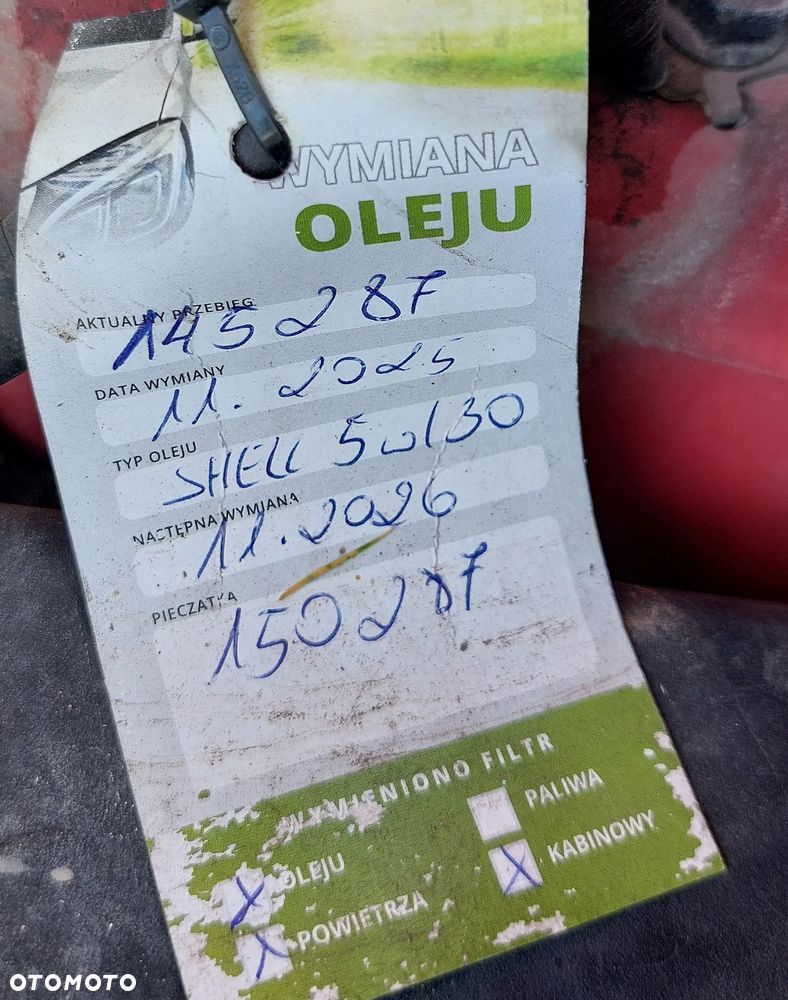 WYMIANA
OLEJU
AKTUALNY PRZEBIEG
145287
DATA WYMIANY
11. 2025
TYP OLEJU
SHELL 5w/30
NASTĘPNA WYMIANA
11. 2026
PIECZĄTKA
150287
WYMIENIONO FILTR
PALIWA
X OLEJU
X KABINOWY
X POWIETRZA
OTOMOTO